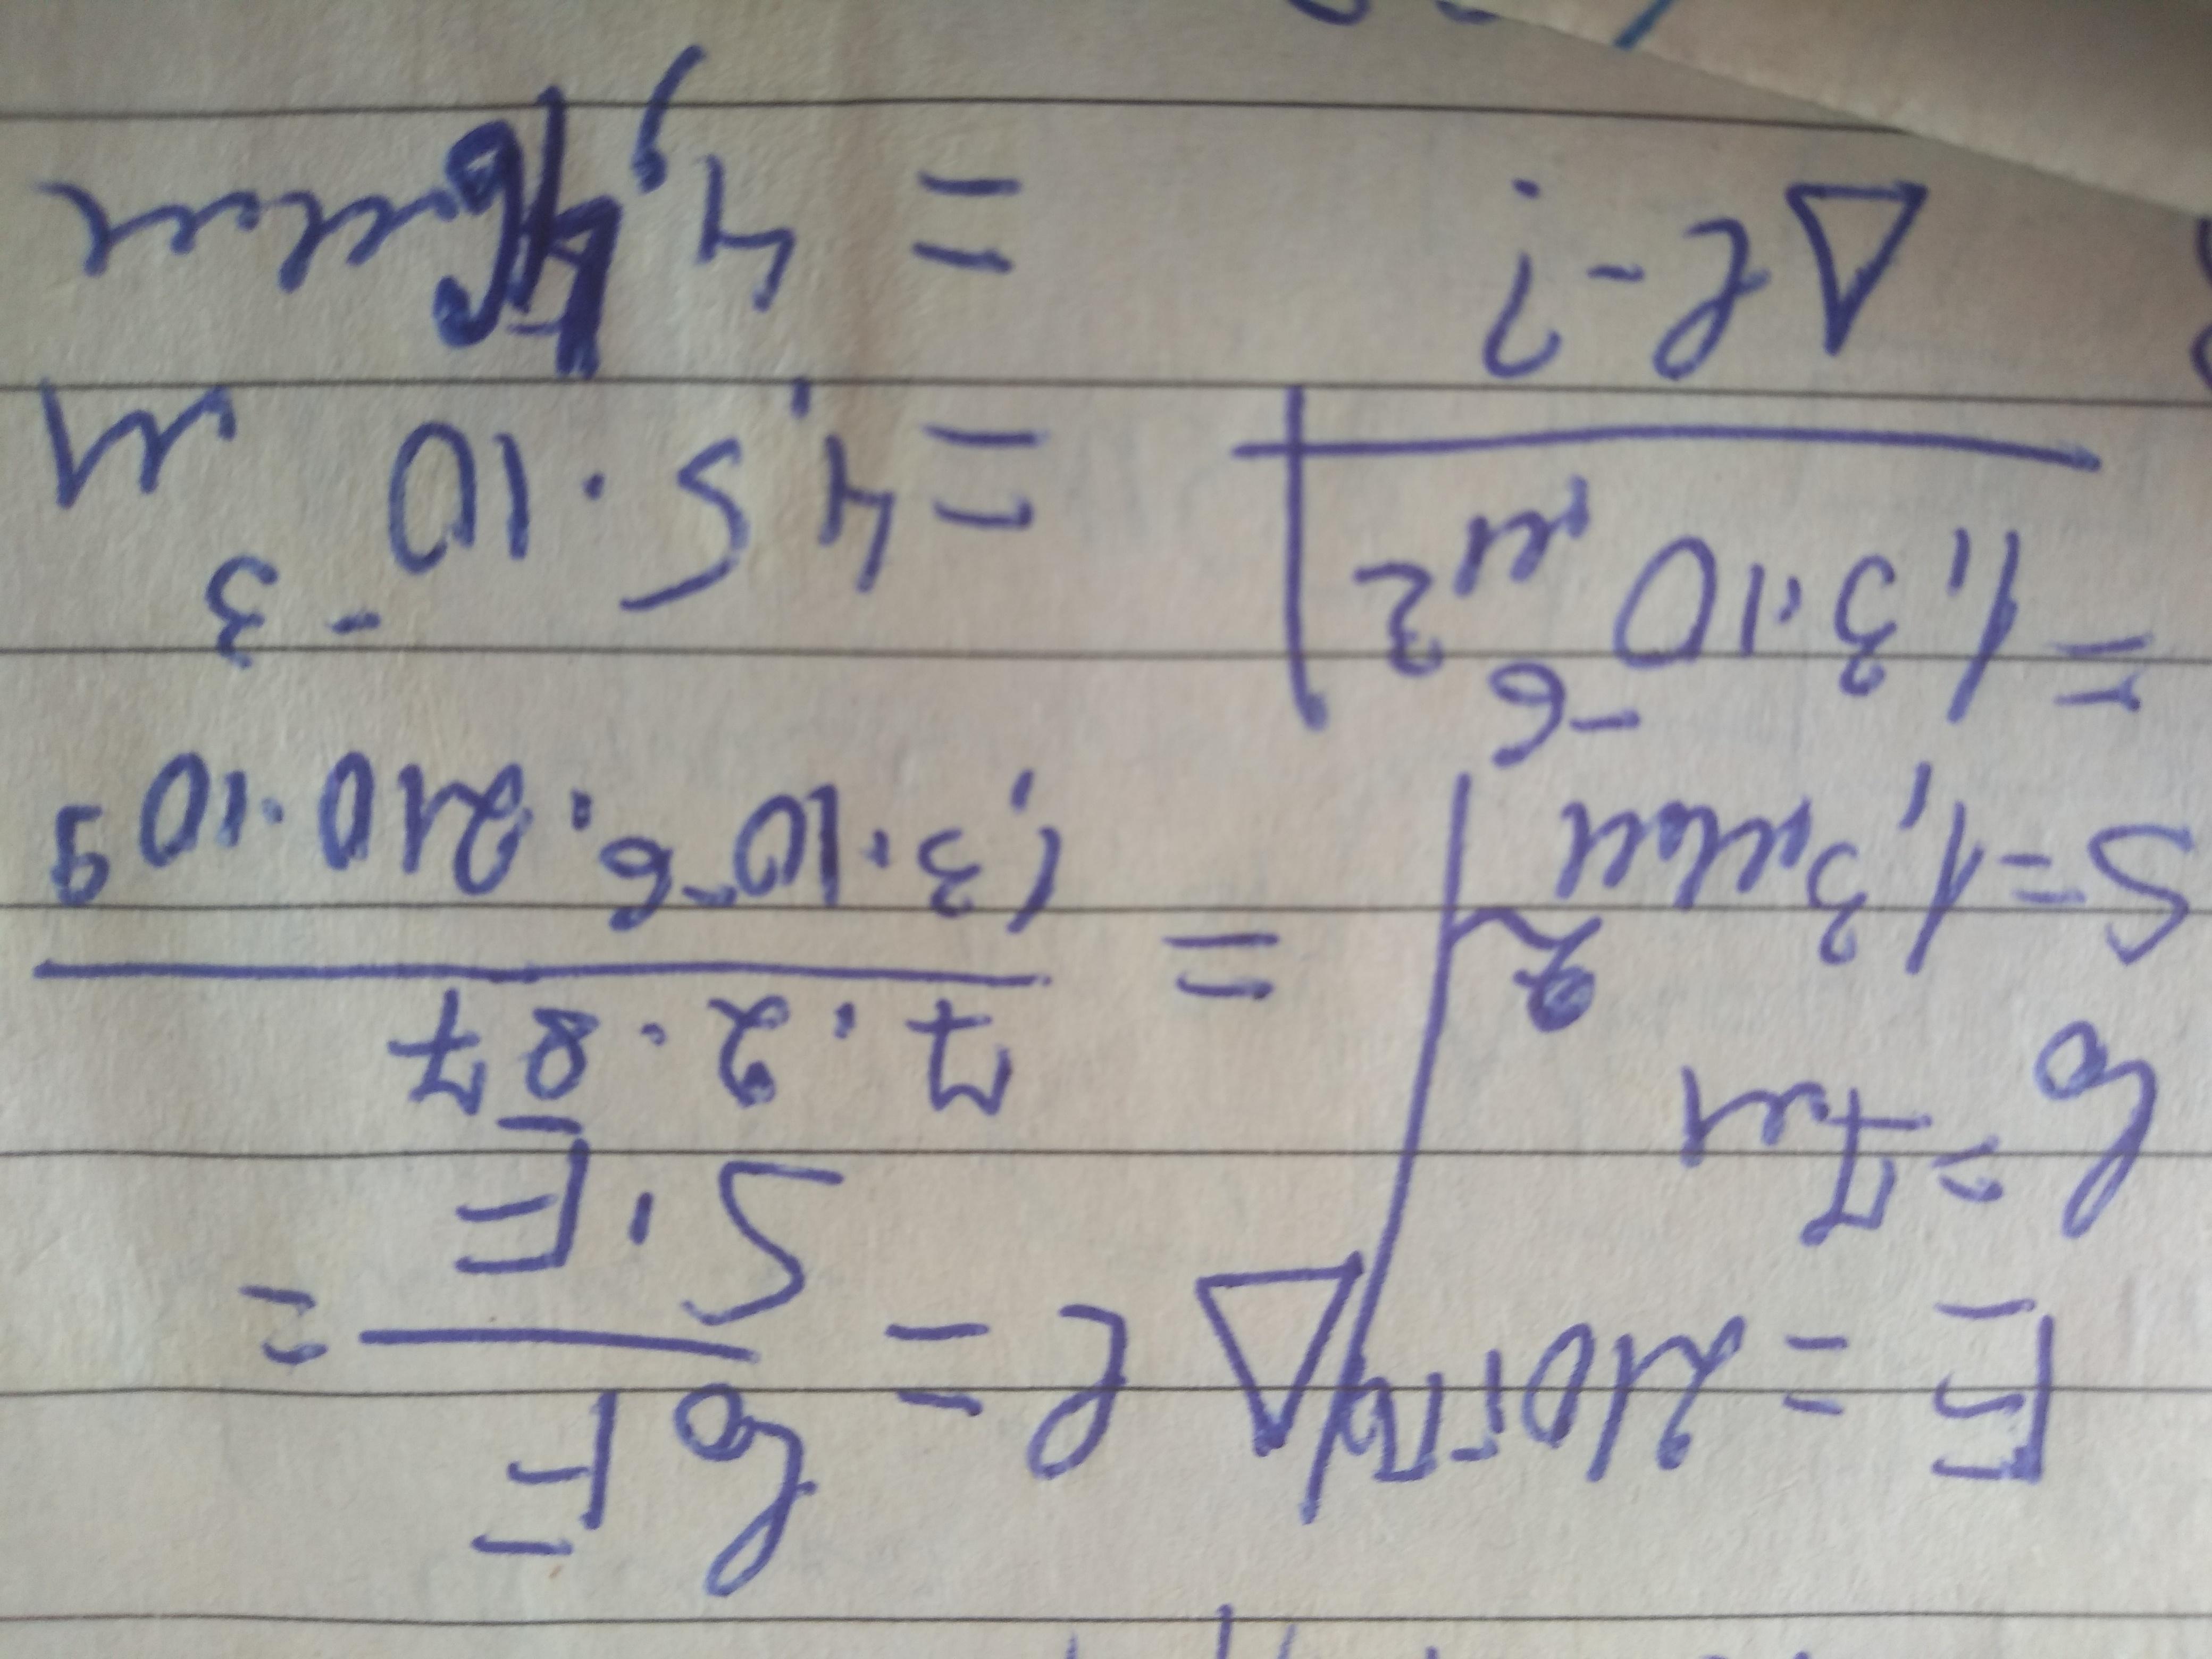 E = 210 ГПа
ℓ = 7м
S = 1,3 мм²
= 1,3·10⁻⁶ м²
Δℓ - ?
Δℓ = ℓF / S·E =
= 7·2·87 / 1,3·10⁻⁶·210·10⁹
= 4,5·10⁻³ м
= 4, мм